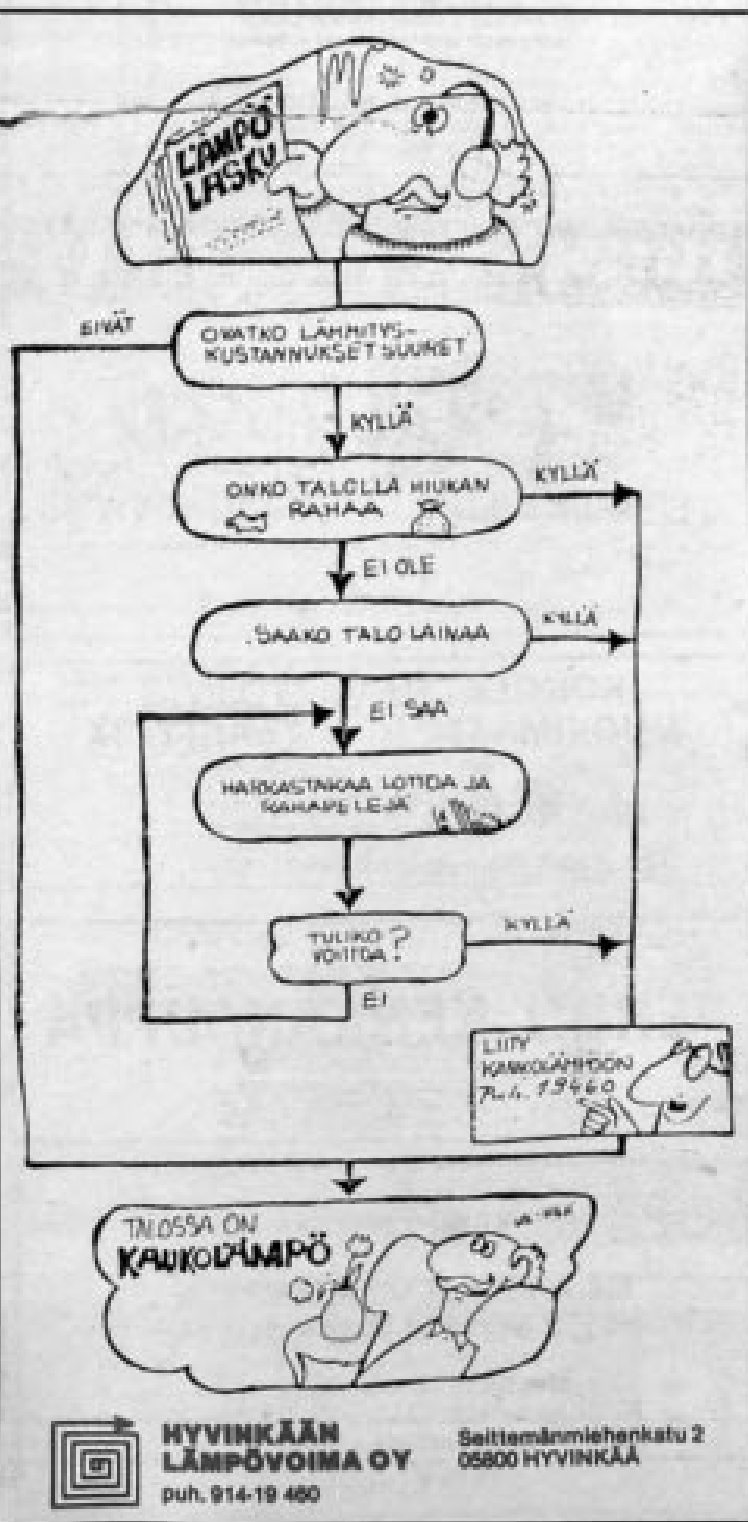 LÄMPÖ
LASKU
EIVÄT
OVATKO LÄMMITYS-
KUSTANNUKSET SUURET
KYLLÄ
ONKO TALOLLA HIUKAN
RAHAA
KYLLÄ
EI OLE
SAAKO TALO LAINAA
KYLLÄ
EI SAA
HARRASTAKAA LOTTOA JA
RAHAPELEJÄ
TULIKO
VOITTOA?
KYLLÄ
EI
LIITY
KAUKOLÄMPÖÖN
Puh. 19460
TALOSSA ON
KAUKOLÄMPÖ
HYVINKÄÄN
LÄMPÖVOIMA OY
puh. 914-19 460
Seittemänmiehenkatu 2
05800 HYVINKÄÄ